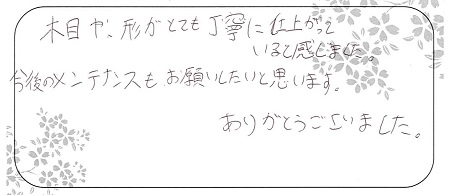 木目や、形がとても丁寧に仕上がって
いると感じました。
今後のメンテナンスもお願いしたいと思います。
ありがとうございました。